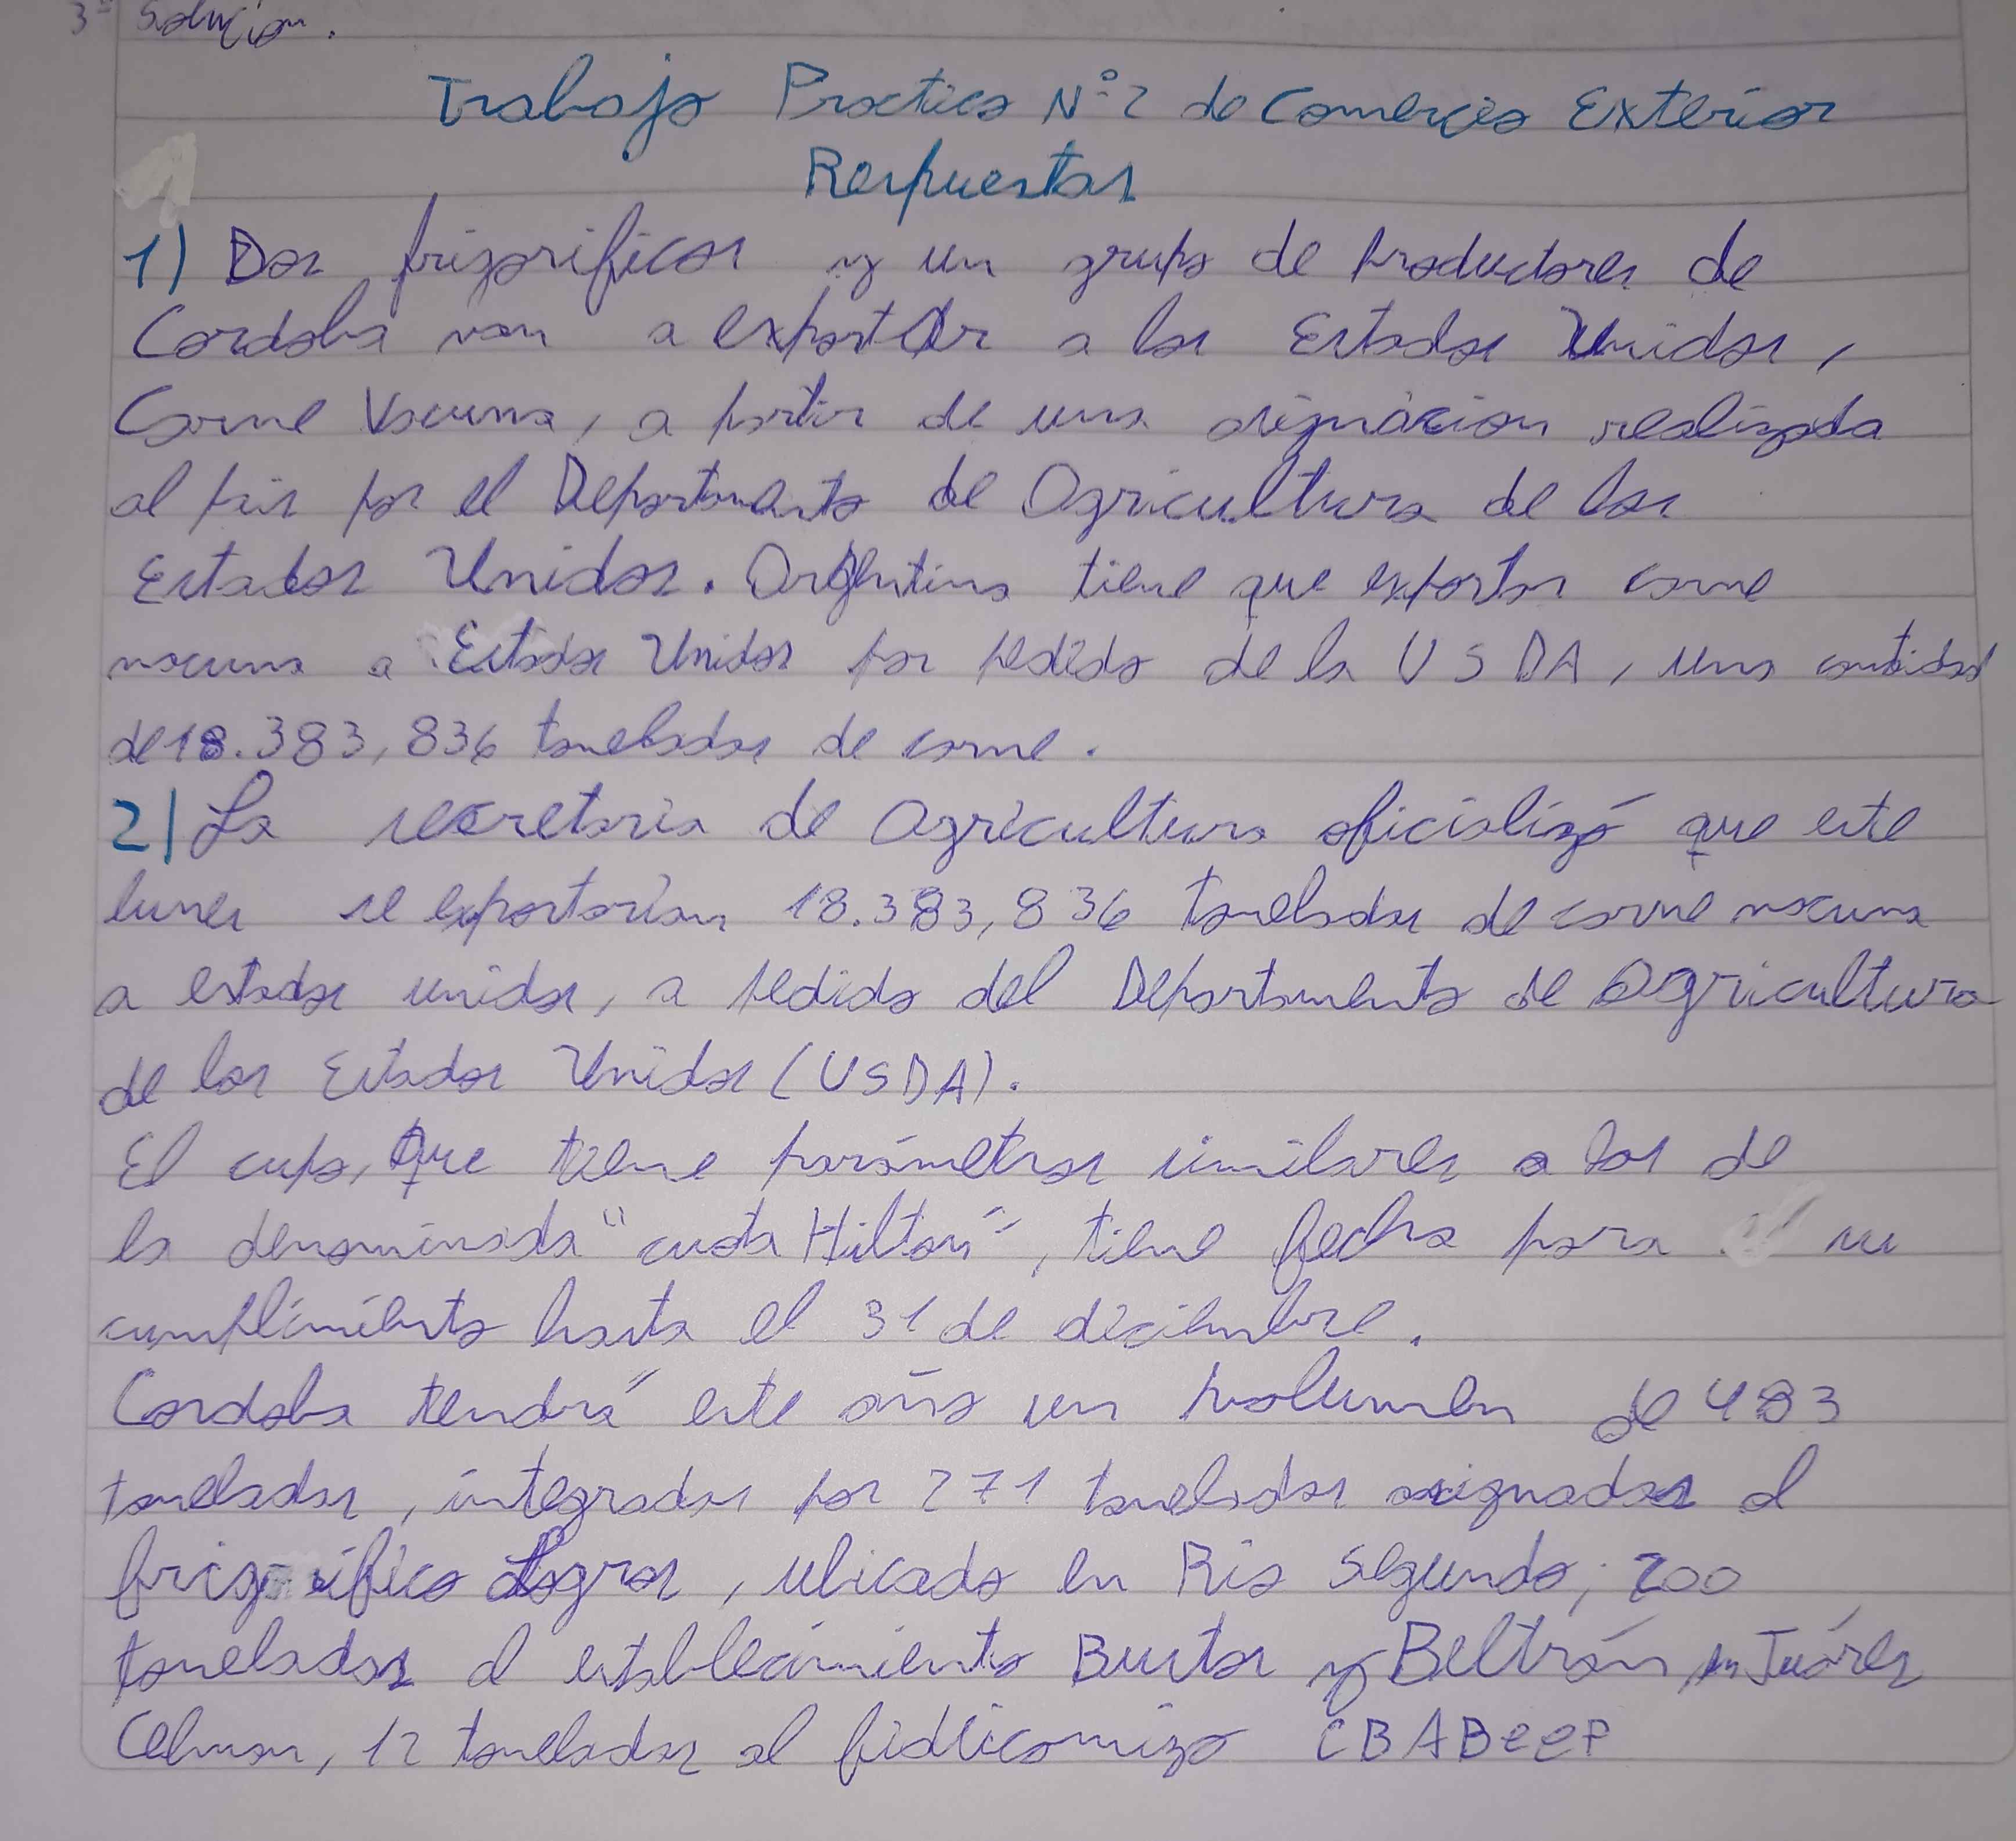 3ª Solución.
Trabajo Practico N°2 de Comercio Exterior
Respuestas
1) Dos frigorificos y un grupo de productores de
Cordoba van a exportar a los Estados Unidos,
Carne Vacuna, a partir de una asignación realizada
al país por el Departamento de Agricultura de los
Estados Unidos. Argentina tiene que exportar carne
vacuna a Estados Unidos por pedido de la USDA, una cantidad
de 18.383,836 toneladas de carne.
2) La secretaria de Agricultura oficializó que este
lunes se exportarian 18.383,836 toneladas de carne vacuna
a estados unidos, a pedido del Departamento de Agricultura
de los Estados Unidos (USDA).
El cupo, que tiene parámetros similares a los de
la denominada "cuota Hilton", tiene fecha para su
cumplimiento hasta el 31 de diciembre.
Cordoba tendrá este año un volumen de 483
toneladas, integradas por 271 toneladas asignadas al
frigorifico Logros, ubicado en Rio Segundo; 200
toneladas al establecimiento Bustos y Beltrán, en Juárez
Celman, 12 toneladas al fideicomizo CBABeeF